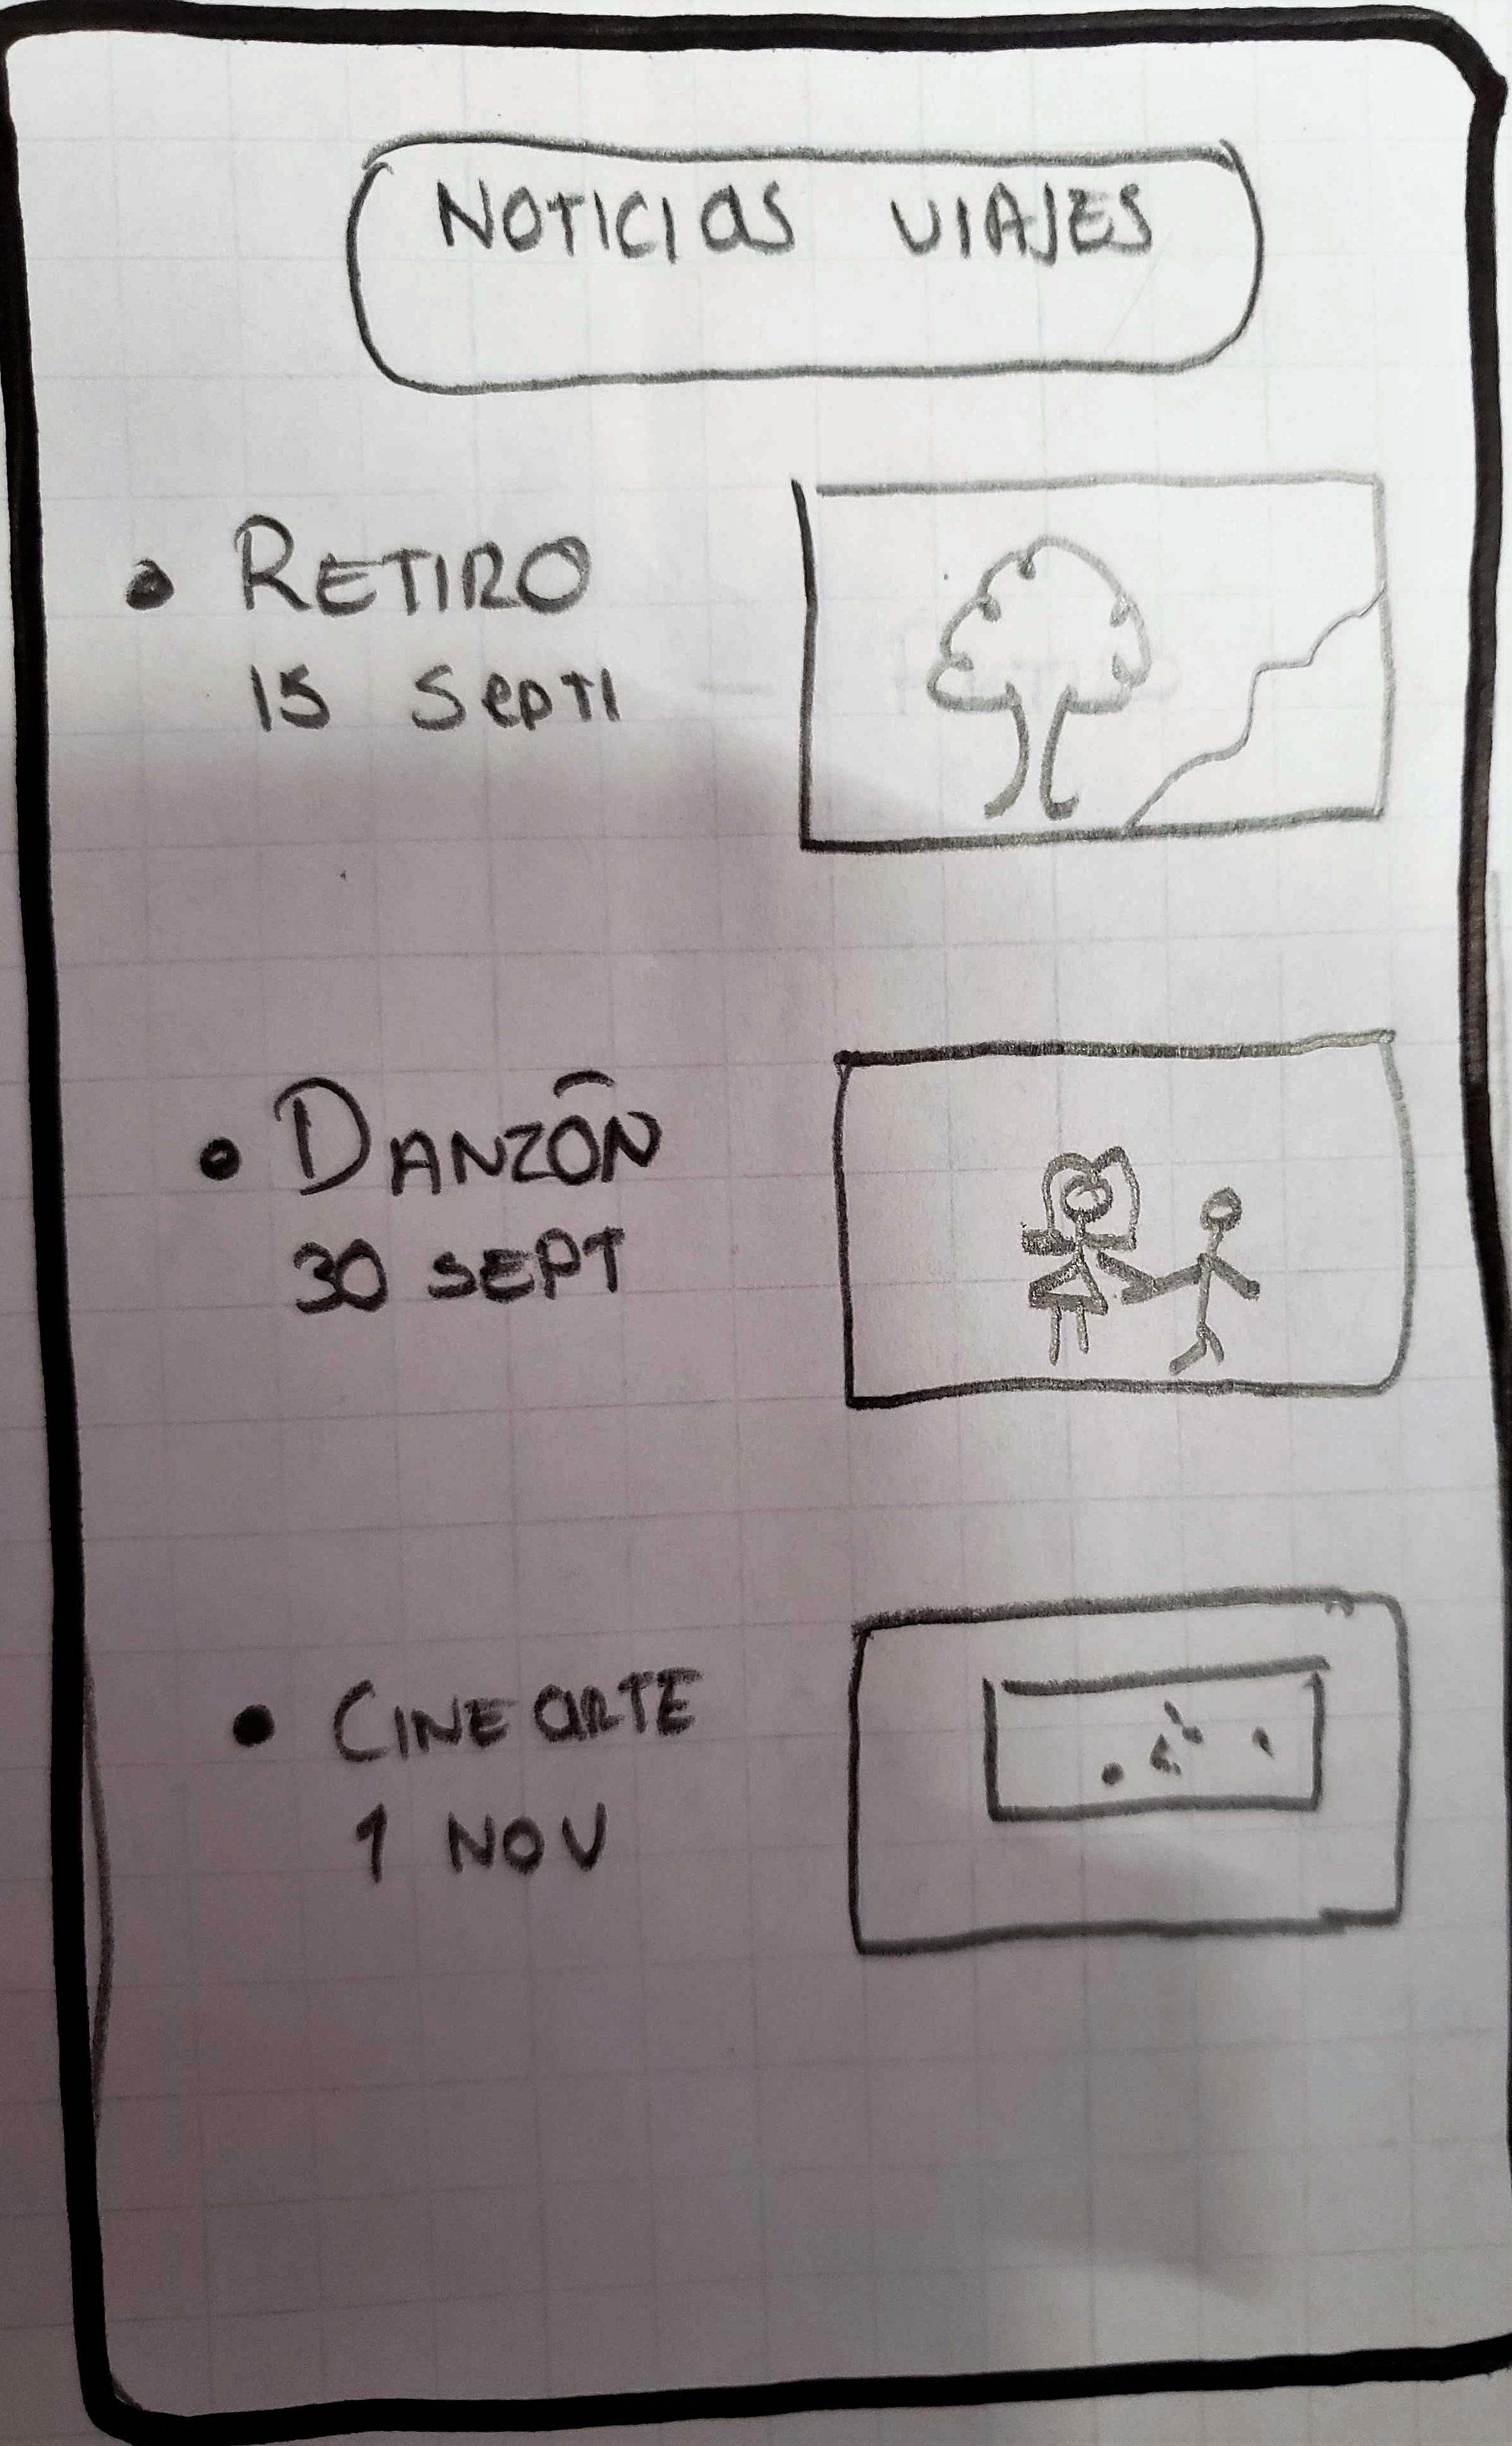 NOTICIAS VIAJES
• RETIRO
15 SEPTI
• DANZÓN
30 SEPT
• CINE ARTE
1 NOV